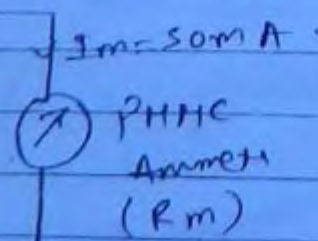 Im = 50m A
PMMC
Ammeter
(Rm)